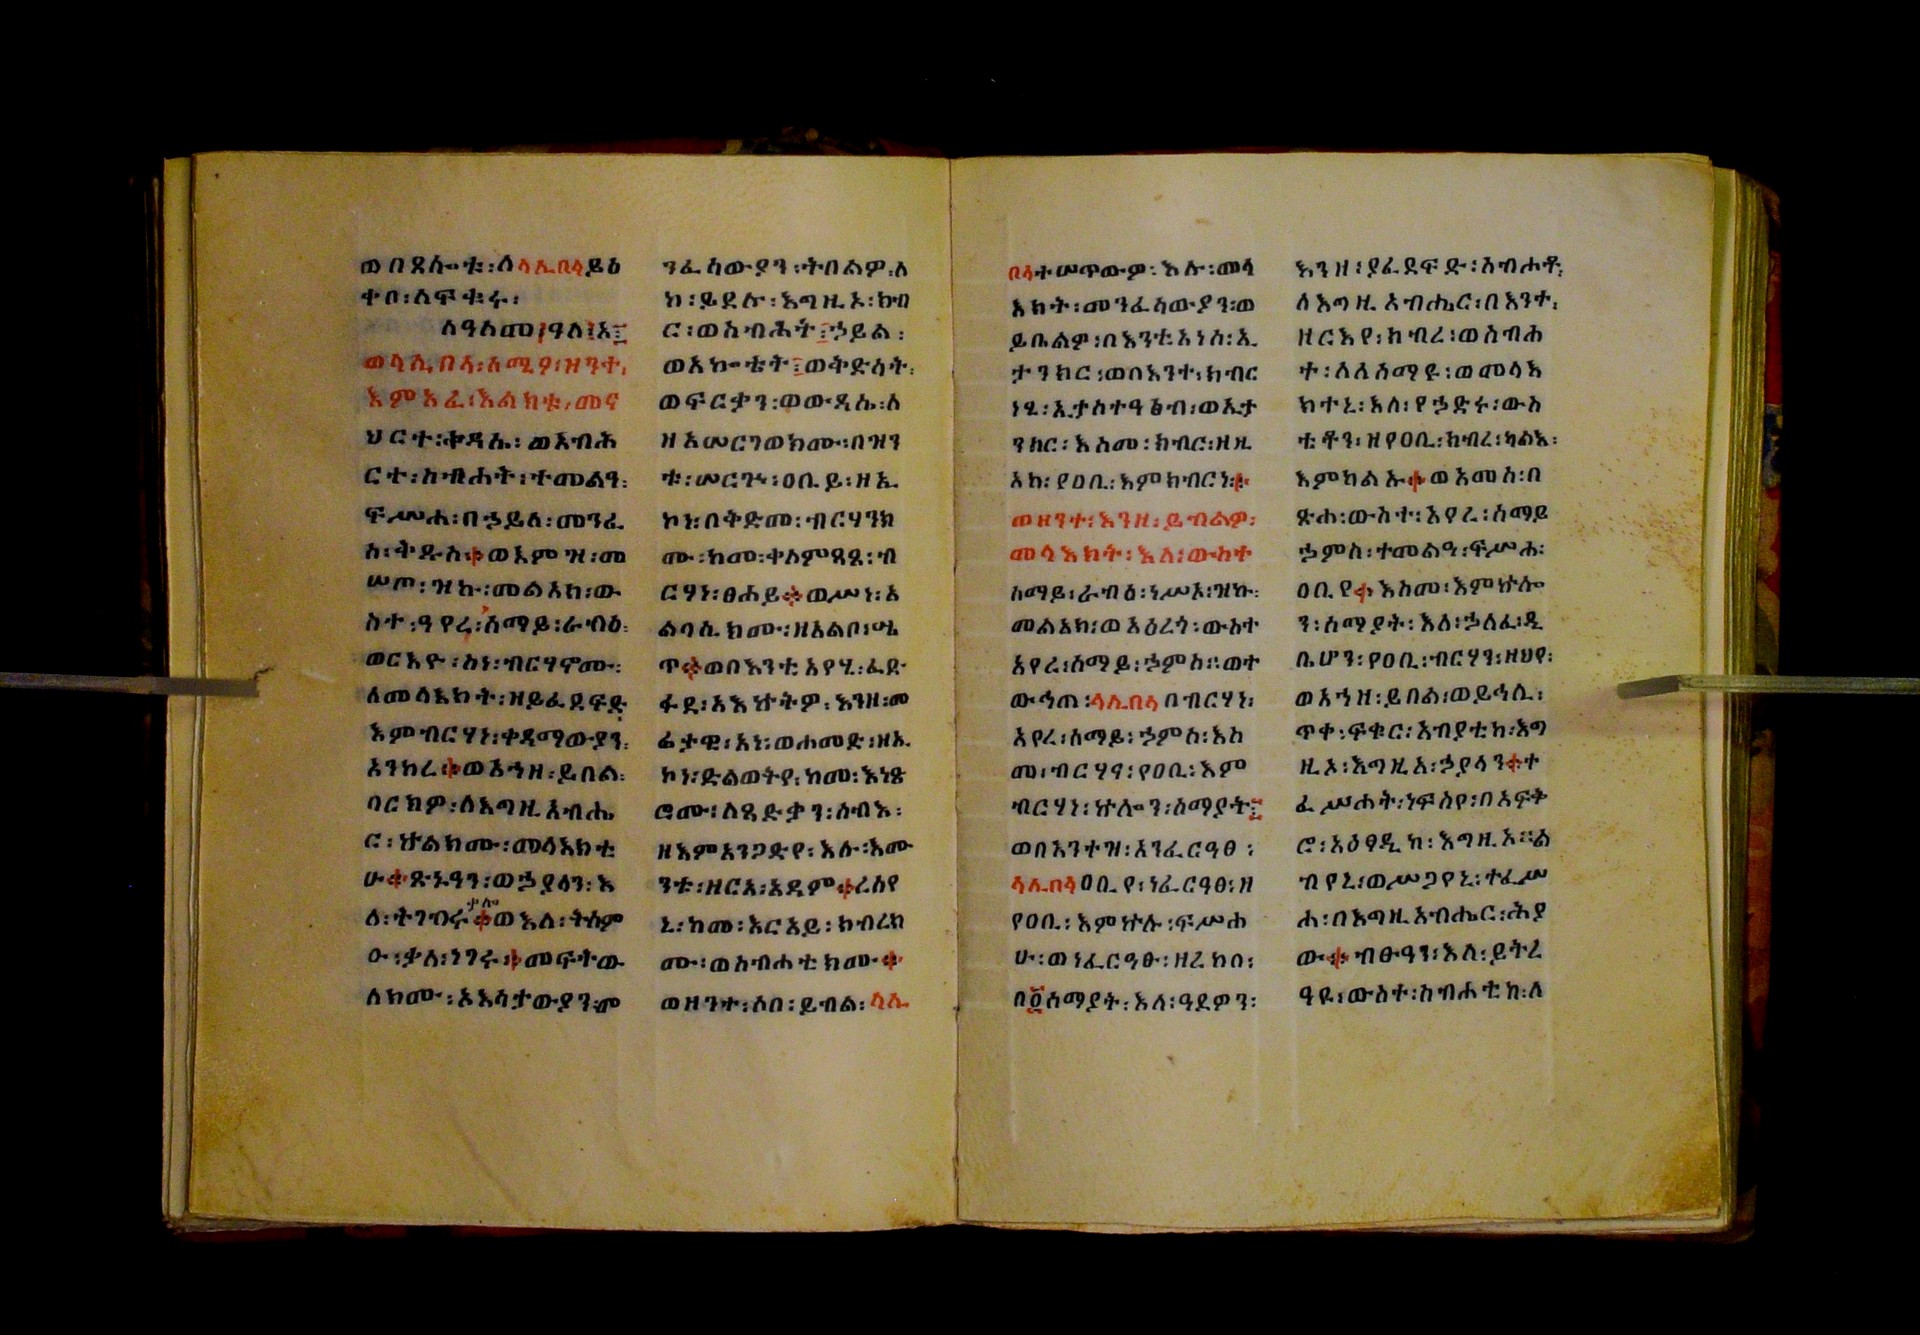 ወበጸሎቱ፡ለላሊበላይዕ
ቀበ፡ሰፍቱሩ፡
ለዓለመ፡ዓለ፡አ፤
ወላሊበላ፡ሰሚዖ፡ዝንተ፡
እምአፈ፡እልክቱ፡መኖ
ህርተ፡ቅዳሴ፡ወአብሕ
ርተ፡ስብሐት፡ተመልዓ፡
ፍሥሐ፡በኃይለ፡መንፈ
ስ፡ቅዱስ፨ወእምዝ፡መ
ሠጦ፡ዝኩ፡መልአከ፡ው
ስተ፡ዓየረ፡ሰማይ፡ራብዕ፡
ወርእዮ፡ስነ፡ብርሃኖሙ፡
ለመላእክት፡ዘይፈደፍድ
እምብርሃነ፡ቀዳማውያን፡
አንከረ፨ወአኀዘ፡ይበል፡
ባርክዎ፡ለእግዚአብሔ
ር፡ኵልክሙ፡መላእክቲ
ሁ፨ጽኑዓን፡ወኃያላን፡እ
ቃሎ
ለ፡ትገብሩ፨ወእለ፡ትሰም
ዑ፡ቃለ፡ነገሩ፨መፍትው
ለክሙ፡ኦእሳታውያን፡መ
ንፈሳውያን፡ትበልዎ፡ለ
ከ፡ይደሉ፡እግዚኦ፡ክብ
ር፡ወስብሕት፤ኃይል፡
ወአኰቴት፤ወቅድሳት፡
ወፍርቃን፡ወውዳሴ፡ለ
ዘአሠርገወክሙ፡በዝን
ቱ፡ሠርጕ፡ዐቢይ፡ዘኢ
ኮነ፡በቅድመ፡ብርሃንክ
ሙ፡ከመ፡ቀለምጺጺ፡ብ
ርሃነ፡ፀሐይ፨ወሥነ፡አ
ልባሲክሙ፡ዘአልቦ፡ሤ
ጥ፨ወበእንቲአየሂ፡ፈድ
ፋደ፡አእኵትዎ፡እንዘ፡መ
ሬታዊ፡አነ፡ወሐመድ፡ዘኢ
ኮነ፡ድልወትየ፡ከመ፡እነጽ
ሮሙ፡ለጻድቃን፡ሰብእ፡
ዘእምአንጋድየ፡እሉ፡እሙ
ንቱ፡ዘርአ፡አዳም፨ረሰየ
ኒ፡ከመ፡እርአይ፡ክብረክ
ሙ፡ወስብሐቲክሙ፨
ወዘንተ፡ሶበ፡ይብል፡ላሊ
በላተሠጥውዎ፡እሉ፡መላ
እክት፡መንፈሳውያን፡ወ
ይቤልዎ፡በእንቲአነሰ፡ኢ
ታንክር፡ወበእንተ፡ክብር
ነሂ፡ኢታስተዓፅብ፡ወኢታ
ንክር፡እስመ፡ክብር፡ዘዚ
አከ፡የዐቢ፡እምክብርነ፨
ወዘንተ፡እንዘ፡ይብልዎ፡
መላእክት፡እለ፡ውስተ
ሰማይ፡ራብዕ፡ነሥኦ፡ዝኩ፡
መልአክ፡ወአዕረጎ፡ውስተ
አየረ፡ሰማይ፡ኃምስ፡ወተ
ውኅጠ፡ላሊበላበብርሃነ፡
አየረ፡ሰማይ፡ኃምስ፡እስ
መ፡ብርሃኖ፡የዐቢ፡እም
ብርሃነ፡ኵሎን፡ሰማያት፤
ወበእንተዝ፡አንፈርዓፀ፡
ላሊበላዐቢየ፡ነፈርዓፀ፡ዘ
የዐቢ፡እምኵሉ፡ፍሥሐ
ሁ፡ወነፈርዓፁ፡ዘረከበ፡
በ፬ሰማያት፡እለ፡ዓደዎን፡
እንዘ፡ያፈደፍድ፡ስብሐቶ፡
ለእግዚአብሔር፡በእንተ፡
ዘርእየ፡ክብረ፡ወስብሐ
ተ፡ሰለሰማዩ፡ወመላእ
ክተኒ፡እለ፡የኃድሩ፡ውስ
ቴቶን፡ዘየዐቢ፡ክብረ፡ካልእ፡
እምካልኡ፨ወአመሰ፡በ
ጽሐ፡ውስተ፡አየረ፡ሰማይ
ኃምስ፡ተመልዓ፡ፍሥሐ፡
ዐቢየ፨እስመ፡እምኵሎ
ን፡ሰማያት፡እለ፡ኃለፈ፡ዲ
ቤሆን፡የዐቢ፡ብርሃን፡ዘህየ፡
ወአኀዘ፡ይበል፡ወይኅሊ፡
ጥቀ፡ፍቁር፡አብያቲከ፡እግ
ዚኦ፡እግዚአ፡ኃያላን፨ተ
ፈሥሐት፡ነፍስየ፡በአፍቅ
ሮ፡አዕፃዲከ፡እግዚኦ፡ል
ብየኒ፡ወሥጋየኒ፡ተፈሥ
ሐ፡በእግዚአብሔር፡ሕያ
ው፨ብፁዓን፡እለ፡ይትረ
ዓዩ፡ውስተ፡ስብሐቲከ፡ለ